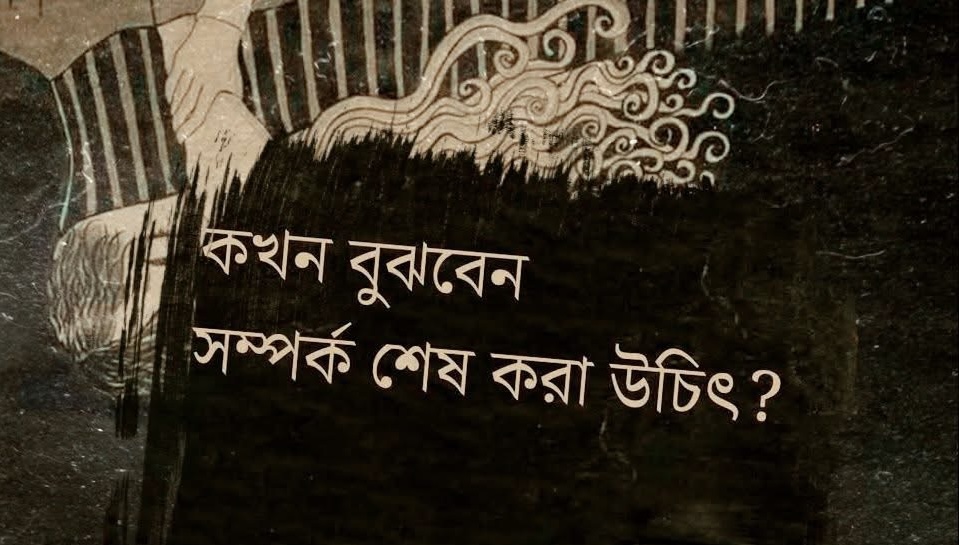 কখন বুঝবেন
সম্পর্ক শেষ করা উচিৎ?